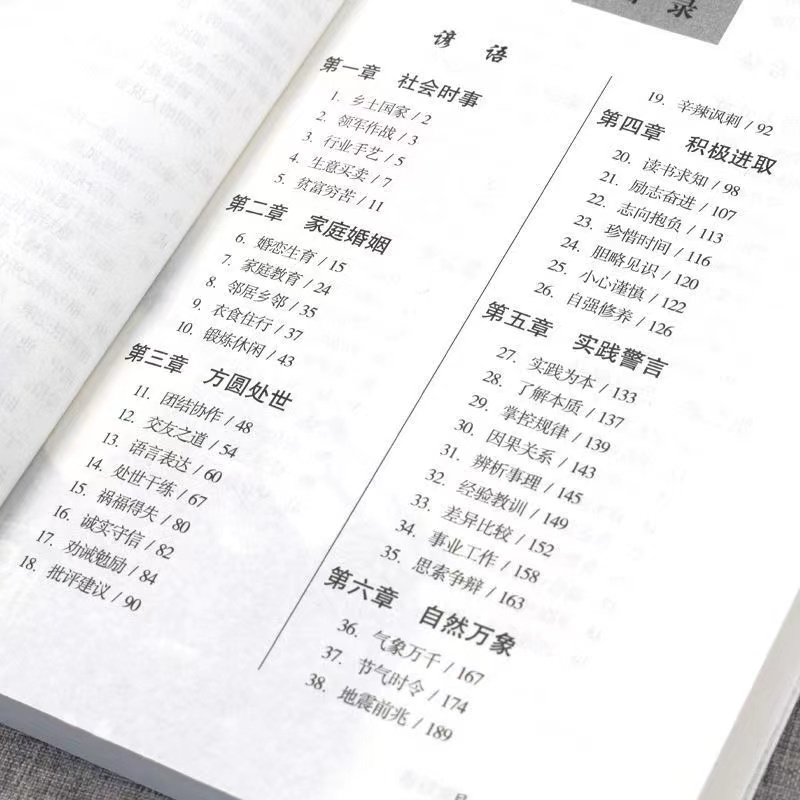 录
谚语
第一章 社会时事
1. 乡土国家 / 2
2. 领军作战 / 3
3. 行业手艺 / 5
4. 生意买卖 / 7
5. 贫富穷苦 / 11
第二章 家庭婚姻
6. 婚恋生育 / 15
7. 家庭教育 / 24
8. 邻居乡邻 / 35
9. 衣食住行 / 37
10. 锻炼休闲 / 43
第三章 方圆处世
11. 团结协作 / 48
12. 交友之道 / 54
13. 语言表达 / 60
14. 处世干练 / 67
15. 祸福得失 / 80
16. 诚实守信 / 82
17. 劝诫勉励 / 84
18. 批评建议 / 90
19. 辛辣讽刺 / 92
第四章 积极进取
20. 读书求知 / 98
21. 励志奋进 / 107
22. 志向抱负 / 113
23. 珍惜时间 / 116
24. 胆略见识 / 120
25. 小心谨慎 / 122
26. 自强修养 / 126
第五章 实践警言
27. 实践为本 / 133
28. 了解本质 / 137
29. 掌控规律 / 139
30. 因果关系 / 143
31. 辨析事理 / 145
32. 经验教训 / 149
33. 差异比较 / 152
34. 事业工作 / 158
35. 思索争辩 / 163
第六章 自然万象
36. 气象万千 / 167
37. 节气时令 / 174
38. 地震前兆 / 189